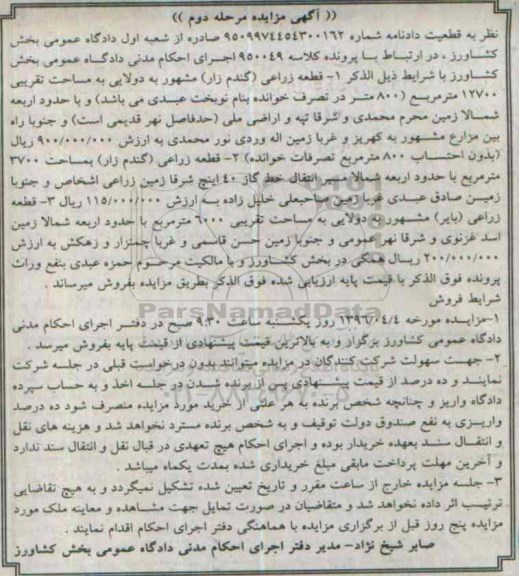 (( آگهی مزایده مرحله دوم ))
نظر به قطعیت دادنامه شماره ۹۵۰۹۹۷۴۴۵۴۳۰۰۱۶۲ صادره از شعبه اول دادگاه عمومی بخش
کشاورز ، در ارتباط با پرونده کلاسه ۹۵۰۰۴۹ اجرای احکام مدنی دادگاه عمومی بخش
کشاورز با شرایط ذیل الذکر ۱- قطعه زراعی (گندم زار) مشهور به دولایی به مساحت تقریبی
۱۲۷۰۰ مترمربع (۸۰۰ متر در تصرف خوانده بنام نوبخت عبدی می باشد) و با حدود اربعه
شمالا زمین محرم محمدی و شرقا تپه و اراضی ملی (حدفاصل نهر قدیمی است) و جنوبا راه
بین مزارع مشهور به کهریز و غربا زمین اله وردی نور محمدی به ارزش ۹۰۰/۰۰۰/۰۰۰ ریال
(بدون احتساب ۸۰۰ مترمربع تصرفات خوانده) ۲- قطعه زراعی (گندم زار) بمساحت ۳۷۰۰
مترمربع با حدود اربعه شمالا مسیر انتقال خط گاز ۴۰ اینچ شرقا زمین زراعی اشخاص و جنوبا
زمین صادق عبدی غربا زمین صاحبعلی خلیل زاده به ارزش ۱۱۵/۰۰۰/۰۰۰ ریال ۳- قطعه
زراعی (بایر) مشهور به دولایی به مساحت تقریبی ۶۰۰۰ مترمربع با حدود اربعه شمالا زمین
اسد غزنوی و شرقا نهر عمومی و جنوبا زمین حسن قاسمی و غربا چمنزار و زهکش به ارزش
۲۰۰/۰۰۰/۰۰۰ ریال همگی در بخش کشاورز و با مالکیت مرحوم حمزه عبدی بنفع وراث
پرونده فوق الذکر با قیمت پایه ارزیابی شده فوق الذکر بطریق مزایده بفروش میرساند .
شرایط فروش
۱-مزایده مورخه ۱۳۹۶/۰۴/۴ روز یکشنبه ساعت ۹:۳۰ صبح در دفتر اجرای احکام مدنی
دادگاه عمومی کشاورز برگزار و به بالاترین قیمت پیشنهادی از قیمت پایه بفروش میرسد .
۲- جهت سهولت شرکت کنندگان در مزایده میتوانند بدون درخواست قبلی در جلسه شرکت
نمایند و ده درصد از قیمت پیشنهادی پس از برنده شدن در جلسه اخذ و به حساب سپرده
دادگاه واریز و چنانچه شخص برنده به هر علتی از خرید مورد مزایده منصرف شود ده درصد
واریزی به نفع صندوق دولت توقیف و به شخص برنده مسترد نخواهد شد و هزینه های نقل
و انتقال سند بعهده خریدار بوده و اجرای احکام هیچ تعهدی در قبال نقل و انتقال سند ندارد
و آخرین مهلت پرداخت مابقی مبلغ خریداری شده بمدت یکماه میباشد .
۳- جلسه مزایده خارج از ساعت مقرر و تاریخ تعیین شده تشکیل نمیگردد و به هیچ تقاضایی
ترتیب اثر داده نخواهد شد و متقاضیان در صورت تمایل جهت مشاهده و معاینه ملک مورد
مزایده پنج روز قبل از برگزاری مزایده با هماهنگی دفتر اجرای احکام اقدام نمایند .
صابر شیخ نژاد- مدیر دفتر اجرای احکام مدنی دادگاه عمومی بخش کشاورز
ParsNamadData